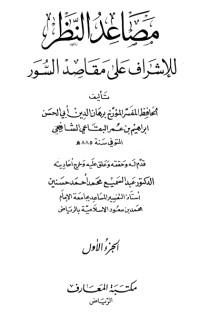 مصاعد النظر
للإشراف على مقاصد السور
تأليف
الحافظ المفسر المؤرخ برهان الدين أبي الحسن
ابراهيم بن عمر البقاعي الشافعي
المتوفى سنة ٨٨٥ هـ
قدم له وحققه وعلق عليه وخرج أحاديثه
الدكتور عبد السميع محمد أحمد حسنين
أستاذ التفسير المساعد بجامعة الإمام
محمد بن سعود الإسلامية بالرياض
الجزء الأول
مكتبة المعارف
الرياض